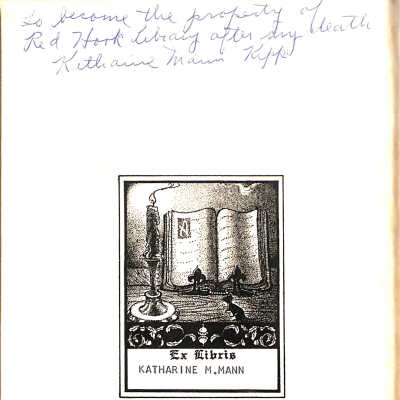 to become the property of
Red Hook Library after my death
Katharine Mann Kipp
Ex Libris
KATHARINE M.MANN